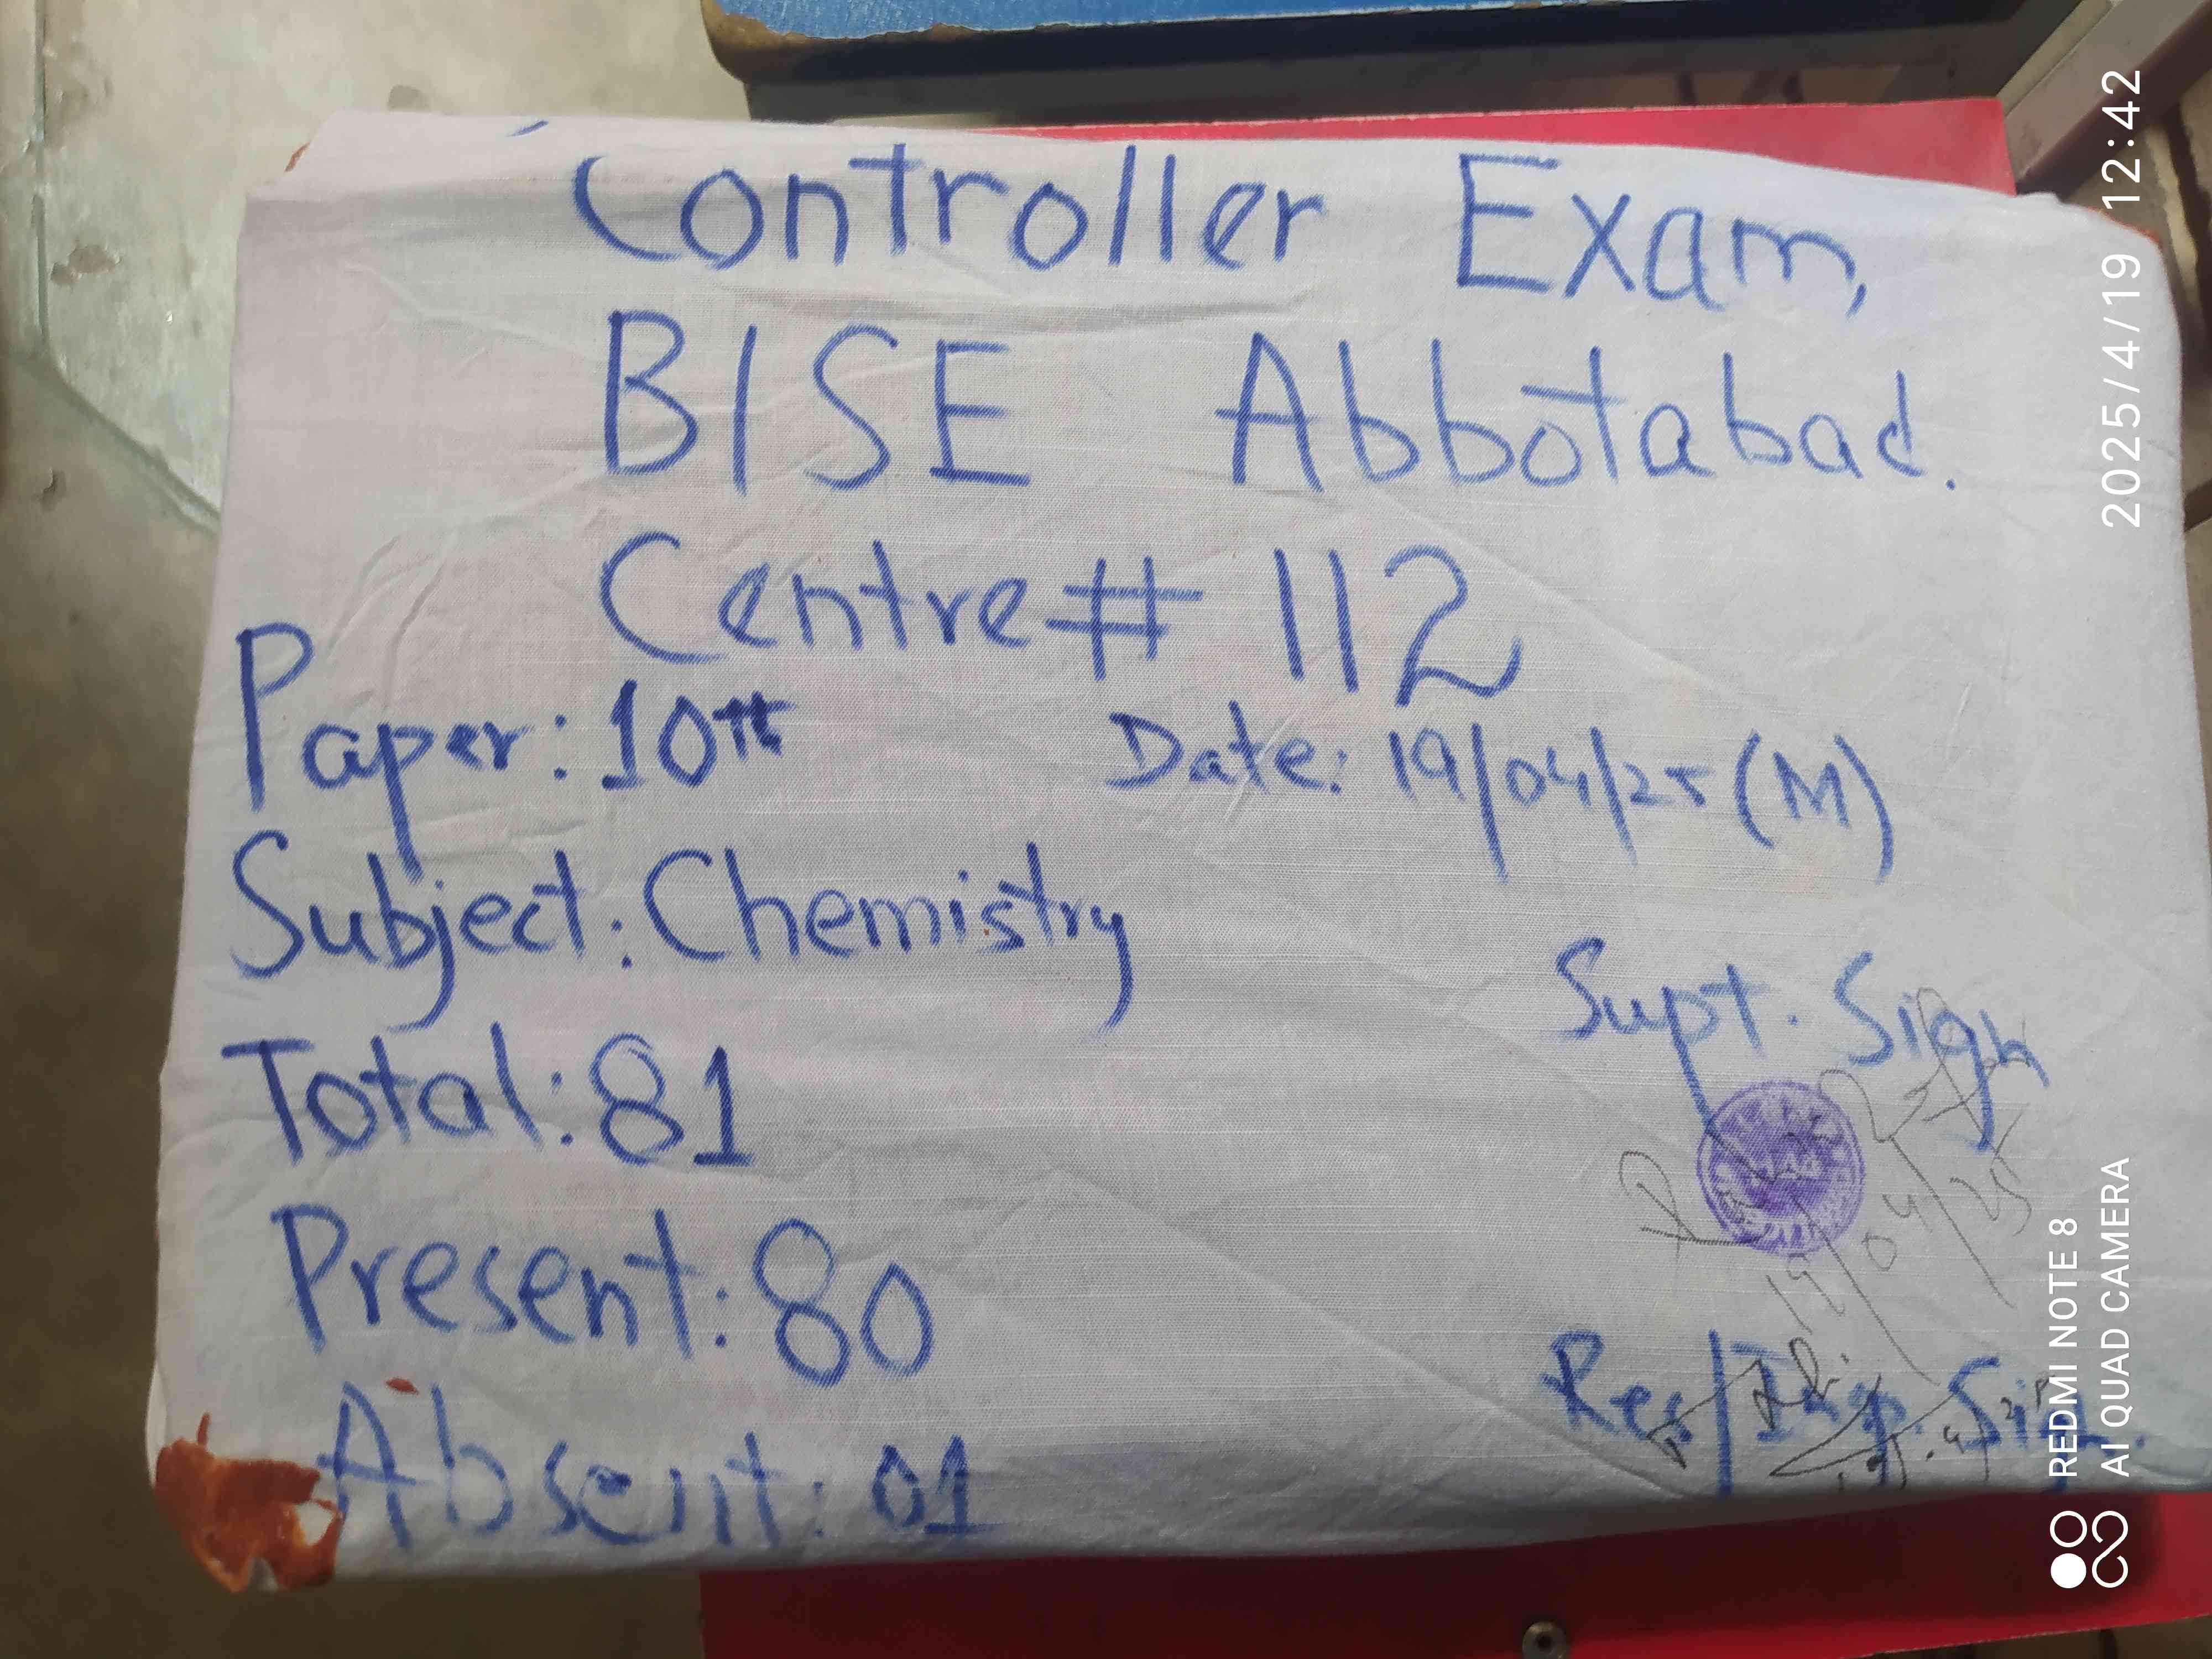 Controller Exam,
BISE Abbotabad.
Centre # 112
Paper: 10th
Date: 19/04/25 (M)
Subject: Chemistry
Total: 81
Present: 80
Absent: 01
Supt. Sign
19/04/25
Res/Insp. Sig.
2025/4/19 12:42
REDMI NOTE 8
AI QUAD CAMERA